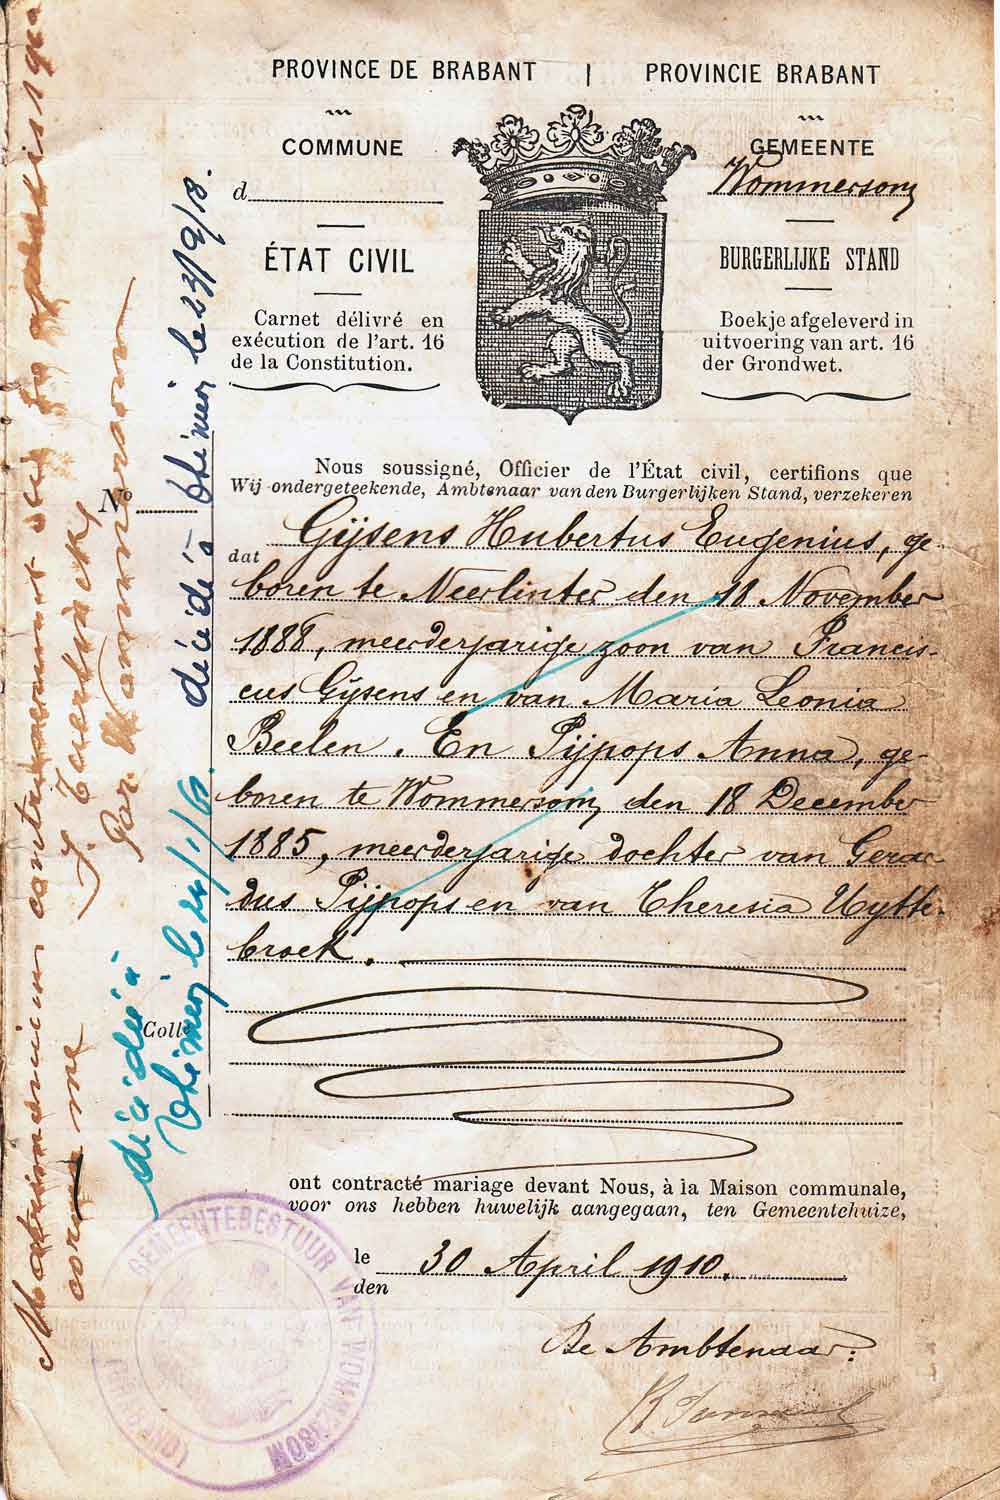 PROVINCE DE BRABANT | PROVINCIE BRABANT
COMMUNE
d
ÉTAT CIVIL
Carnet délivré en
exécution de l'art. 16
de la Constitution.
GEMEENTE
Wommersom
BURGERLIJKE STAND
Boekje afgeleverd in
uitvoering van art. 16
der Grondwet.
No
Nous soussigné, Officier de l'État civil, certifions que
Wij ondergeteekende, Ambtenaar van den Burgerlijken Stand, verzekeren
dat Gijsens Hubertus Eugenius, ge-
boren te Neerlinter den 18 November
1888, meerderjarige zoon van Francis-
cus Gijsens en van Maria Leonia
Beelen. En Pijpops Anna, ge-
boren te Wommersom, den 18 December
1885, meerderjarige dochter van Gerar-
dus Pijpops en van Theresia Uytte-
broek.
ont contracté mariage devant Nous, à la Maison communale,
voor ons hebben huwelijk aangegaan, ten Gemeentehuize,
le
den 30 April 1910.
De Ambtenaar:
GEMEENTEBESTUUR VAN WOMMERSOM
(BRABANT)
Matrimonium contraxerunt die 30 aprilis 1910
coram me
Par Wommersom
décédé à Thiméon le 23/9/18.
décédée à
Thiméon le 24/1/61